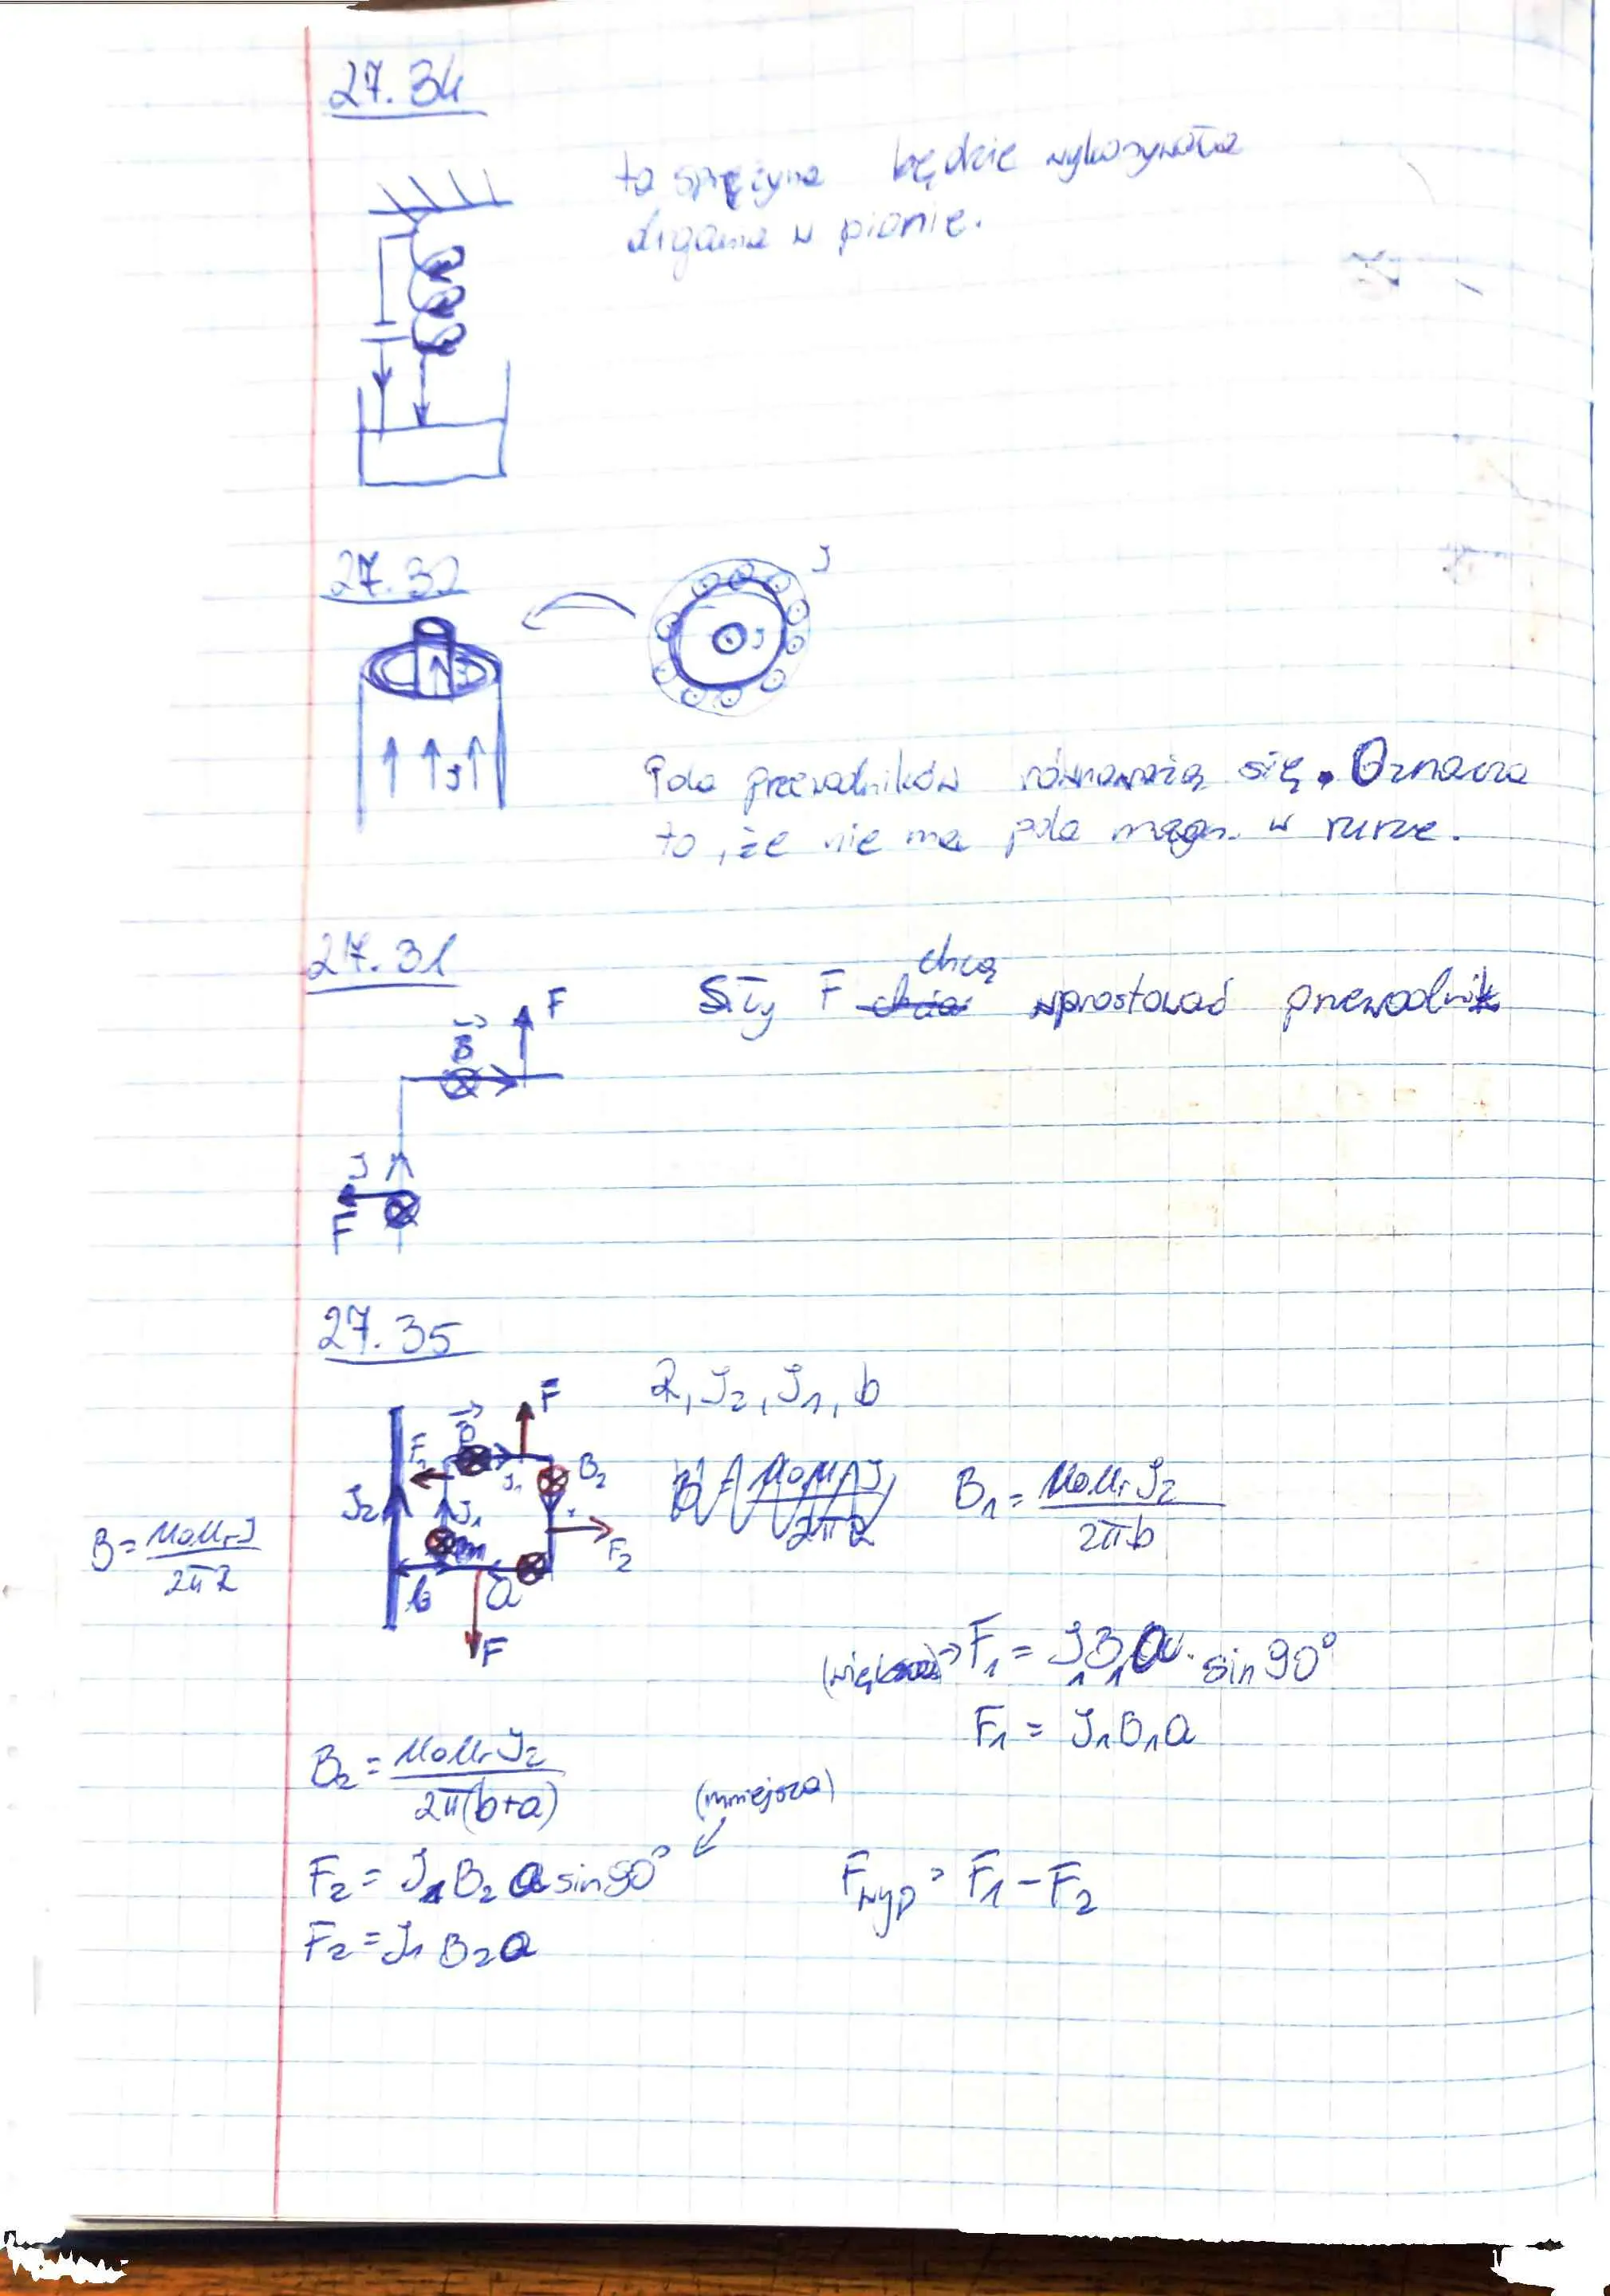 27.34
ta sprężyna będzie wykonywała
drgania w pionie.
27.32
J
J
J
J
Pola przewodników równoważą się. Oznacza
to, że nie ma pola magn. w rurze.
27.31
chcą
Siły F wprostować przewodnik
B F
J
F
27.35
R, J₂, J₁, b
F
F₁ B J₁ B₂
J₂ J₁ F₂
b a
F
B₁ = μ₀μᵣJ₂ / 2πb
B = μ₀μᵣJ / 2πR
(większa) → F₁ = J₁B₁a · sin90°
F₁ = J₁B₁a
B₂ = μ₀μᵣJ₂ / 2π(b+a)
(mniejsza)
F₂ = J₁B₂a sin90°
F₂ = J₁B₂a
Fwyp = F₁ - F₂